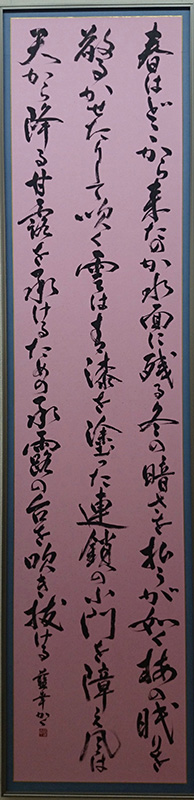 春はどこから来たのか水面に残る冬の暗さを払うが如く梅の眠りを
驚かせたりして吹く雲は青漆を塗った連鎖の小門を障え風は
天から降る甘露を承けるための承露の台を吹き抜ける